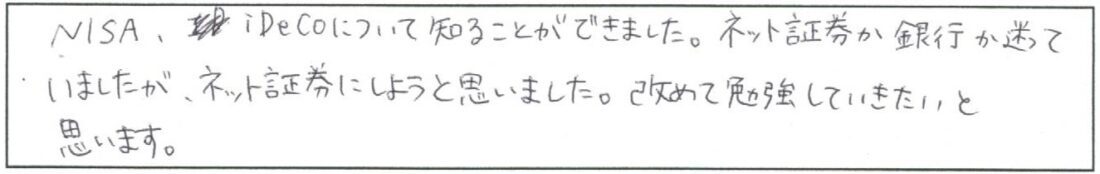 NISA、iDeCoについて知ることができました。ネット証券か銀行か迷って
いましたが、ネット証券にしようと思いました。改めて勉強していきたいと
思います。